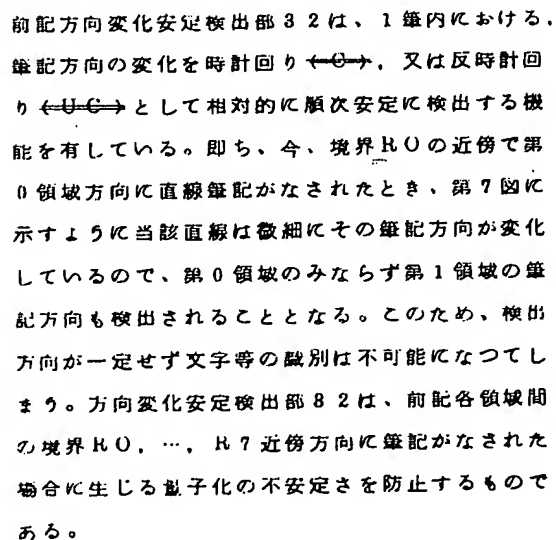 前記方向変化安定検出部32は、1筆内における、
筆記方向の変化を時計回り(C)、又は反時計回
り(UC)として相対的に順次安定に検出する機
能を有している。即ち、今、境界R0の近傍で第
0領域方向に直線筆記がなされたとき、第7図に
示すように当該直線は微細にその筆記方向が変化
しているので、第0領域のみならず第1領域の筆
記方向も検出されることとなる。このため、検出
方向が一定せず文字等の識別は不可能になつてし
まう。方向変化安定検出部32は、前記各領域間
の境界R0,…,R7近傍方向に筆記がなされた
場合に生じる量子化の不安定さを防止するもので
ある。